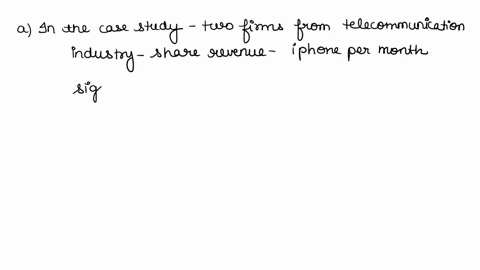 a) In the case study - two firms from telecommunication
industry - share revenue - iphone per month
sig